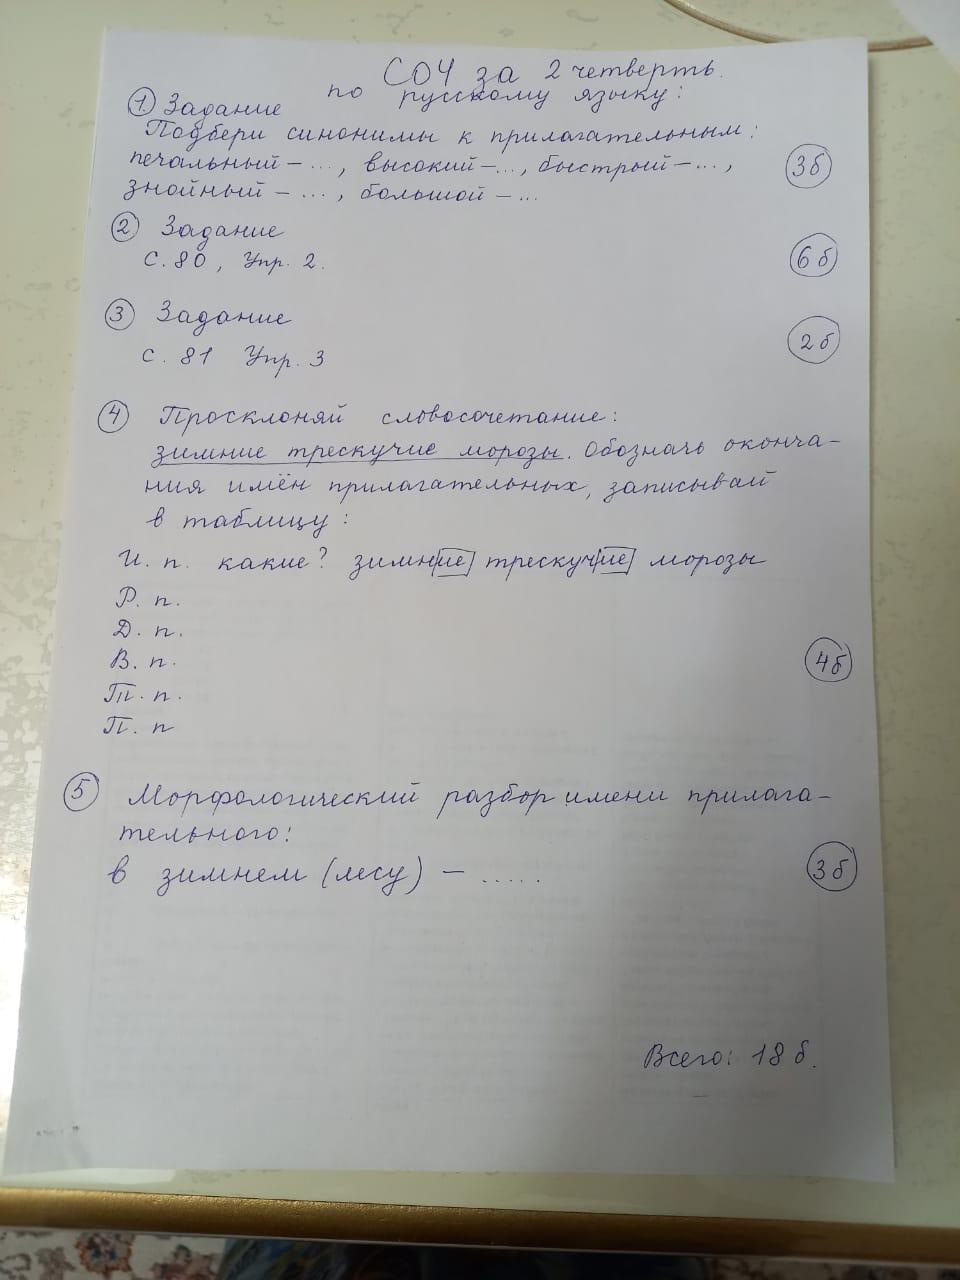 СОЧ за 2 четверть.
по русскому языку:
1. Задание
Подбери синонимы к прилагательным:
печальный – ..., высокий – ..., быстрый – ...,
знойный – ..., большой – ...
3б
2 Задание
с. 80, Упр. 2.
6б
3 Задание
с. 81 Упр. 3
2б
4 Просклоняй словосочетание:
зимние трескучие морозы. Обозначь оконча-
ния имён прилагательных, записывай
в таблицу:
И. п. какие? зимние трескучие морозы
Р. п.
Д. п.
В. п.
Т. п.
П. п
4б
5 Морфологический разбор имени прилага-
тельного:
в зимнем (лесу) – .....
3б
Всего: 18 б.